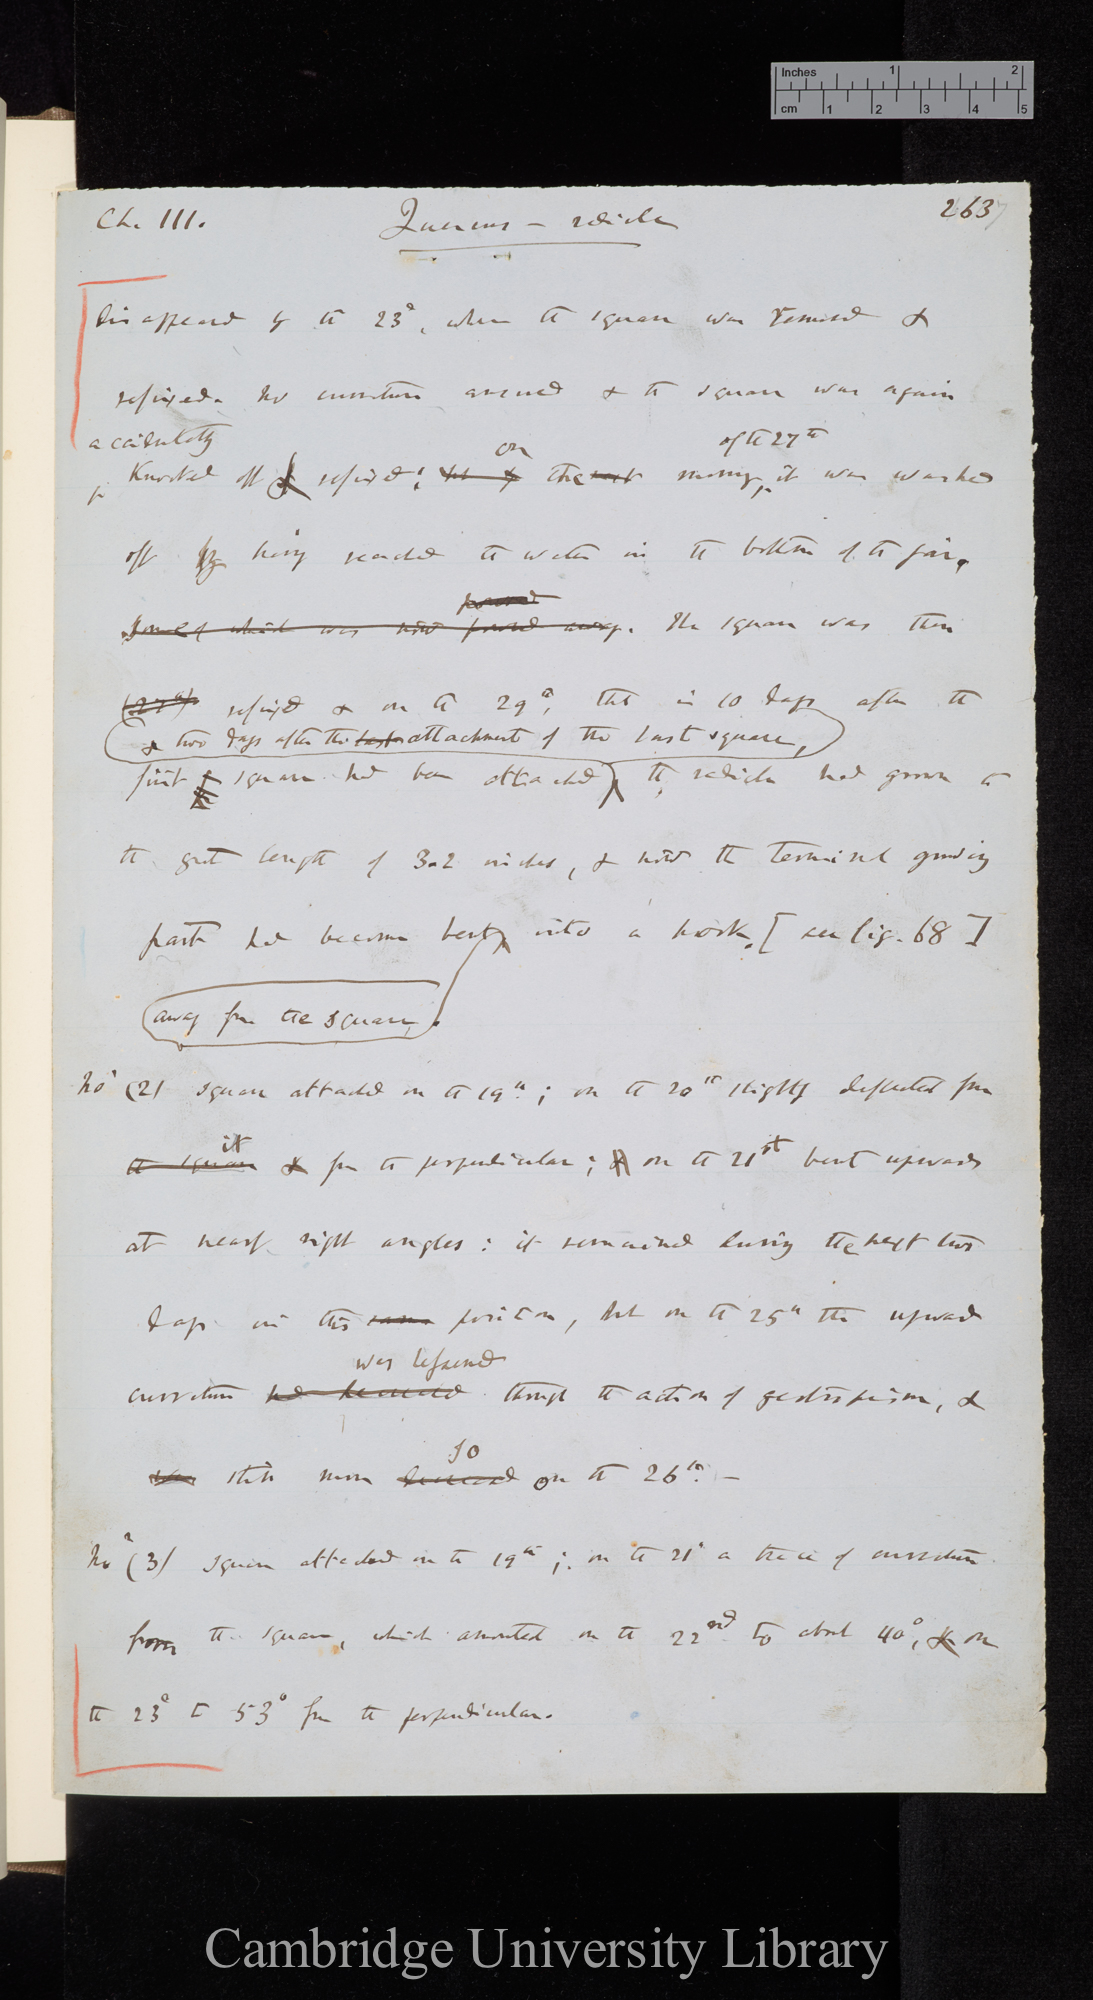 Inches 1 2
cm 1 2 3 4 5
Ch. III.
Quercus — radicle
263
disappeared by the 23d, when the square was removed &
refixed. No curvature ensued & the square was again
accidentally
on
of the 27th
knocked off & refixed; the morning, it was washed
off by having reached the water in the bottom of the jar.
some of which was now poured away. The square was then
(27th) refixed & on the 29th, that is 10 days after the
& two days after the last attachment of the last square,
first square had been attached, the radicle had grown to
the great length of 3.2 inches, & now the terminal growing
part had become bent into a hook. [see fig. 68]
away from the square
No (2) square attached on the 19th; on the 20th slightly deflected from
it
the square & from the perpendicular; & on the 21st bent upwards
at nearly right angles: it remained during the next two
days in this same position, but on the 25th the upward
was lessened
curvature had decreased through the action of geotropism, &
so
still more decreased on the 26th. —
No (3) square attached on the 19th; on the 21st a trace of curvature
from the square, which amounted on the 22nd to about 40°, & on
the 23d to 53° from the perpendicular.
Cambridge University Library